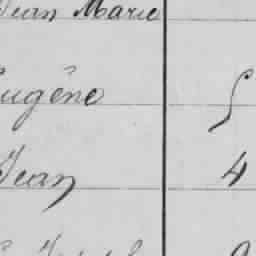 Jean Marie
Eugène 5
Jean 4